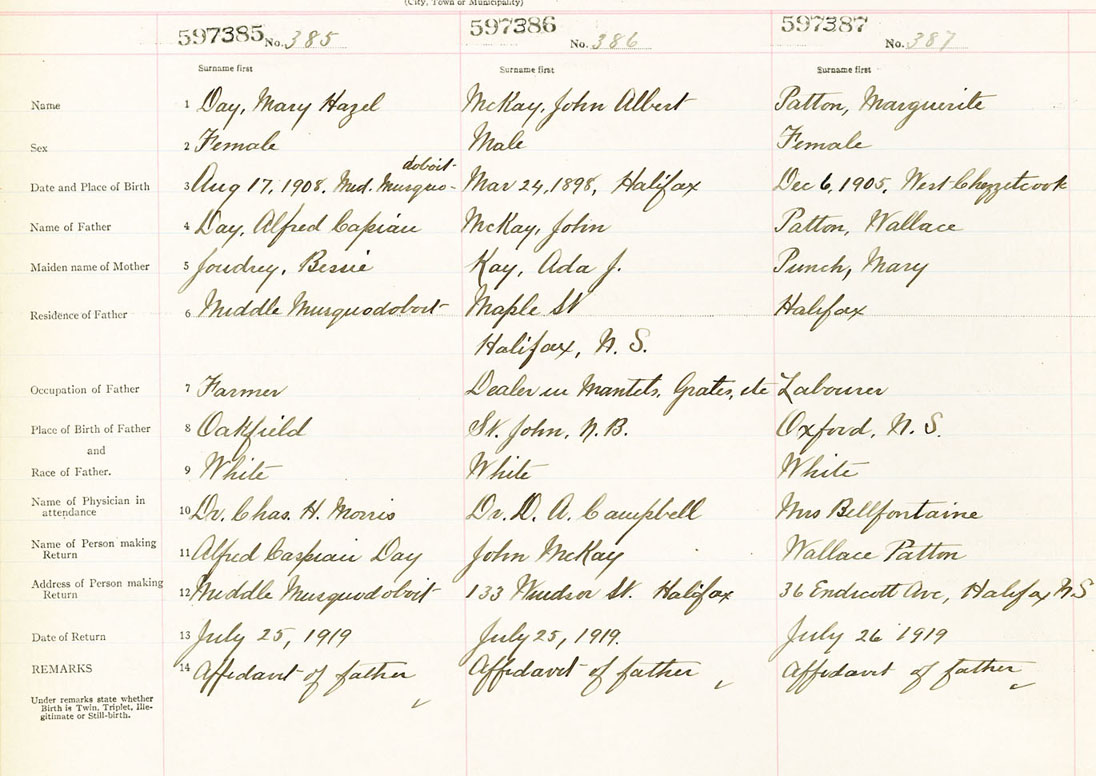 (City, Town or Municipality)
597385 No. 385 597386 No. 386 597387 No. 387
Surname first Surname first Surname first
Name 1 Day, Mary Hazel McKay, John Albert Patton, Marguerite
Sex 2 Female Male Female
doboit-
Date and Place of Birth 3 Aug 17, 1908. Mid. Musquo- Mar 24, 1898, Halifax Dec 6, 1905, West Chezzetcook
Name of Father 4 Day, Alfred Capiaii McKay, John Patton, Wallace
Maiden name of Mother 5 Joudrey, Bessie Kay, Ada J. Punch, Mary
Residence of Father 6 Middle Musquodoboit Maple St Halifax
Halifax, N. S.
Occupation of Father 7 Farmer Dealer in Mantels, Grates, etc Labourer
Place of Birth of Father 8 Oakfield St. John, N.B. Oxford, N. S.
and
Race of Father. 9 White White White
Name of Physician in
attendance 10 Dr. Chas. H. Morris Dr. D. A. Campbell Mrs Bellfontaine
Name of Person making
Return 11 Alfred Caspiaii Day John McKay Wallace Patton
Address of Person making
Return 12 Middle Musquodoboit 133 Windsor St. Halifax 36 Endicott Ave, Halifax N.S
Date of Return 13 July 25, 1919 July 25, 1919. July 26 1919
REMARKS 14 Affidavit of father Affidavit of father Affidavit of father
Under remarks state whether
Birth is Twin, Triplet, Ille-
gitimate or Still-birth.